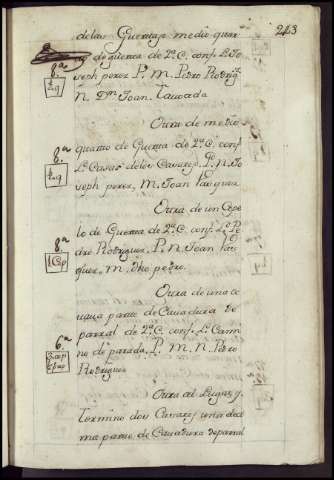 243
delas Huertas medio quar
to de guerta de 2ª C. conf. L. Jo
seph perez P. M. Pedro Rodrig
N. Dn Joan Taboada
8.ª
Otra de medio
quarto de Guerta de 2ª C. conf
L. Casas delos Cavarcos P. N. Jo
seph perez, M. Joan Vazquez
8.ª
Otra de un Cope
lo de Guerta de 2ª C. conf. L. Pe
dro Rodriguez, P. N. Joan Vaz
quez, M. dho pedro.
8.ª
1 Cp
Otra de una o
tava parte de Cavadura de
parral de 2ª C. conf. L. Cami
no de parada, P. M. N. Pedro
Rodriguez
6.ª
Otra al Lugar y
Termino dos Cavarcos una deci
ma parte de Cavadura deparral